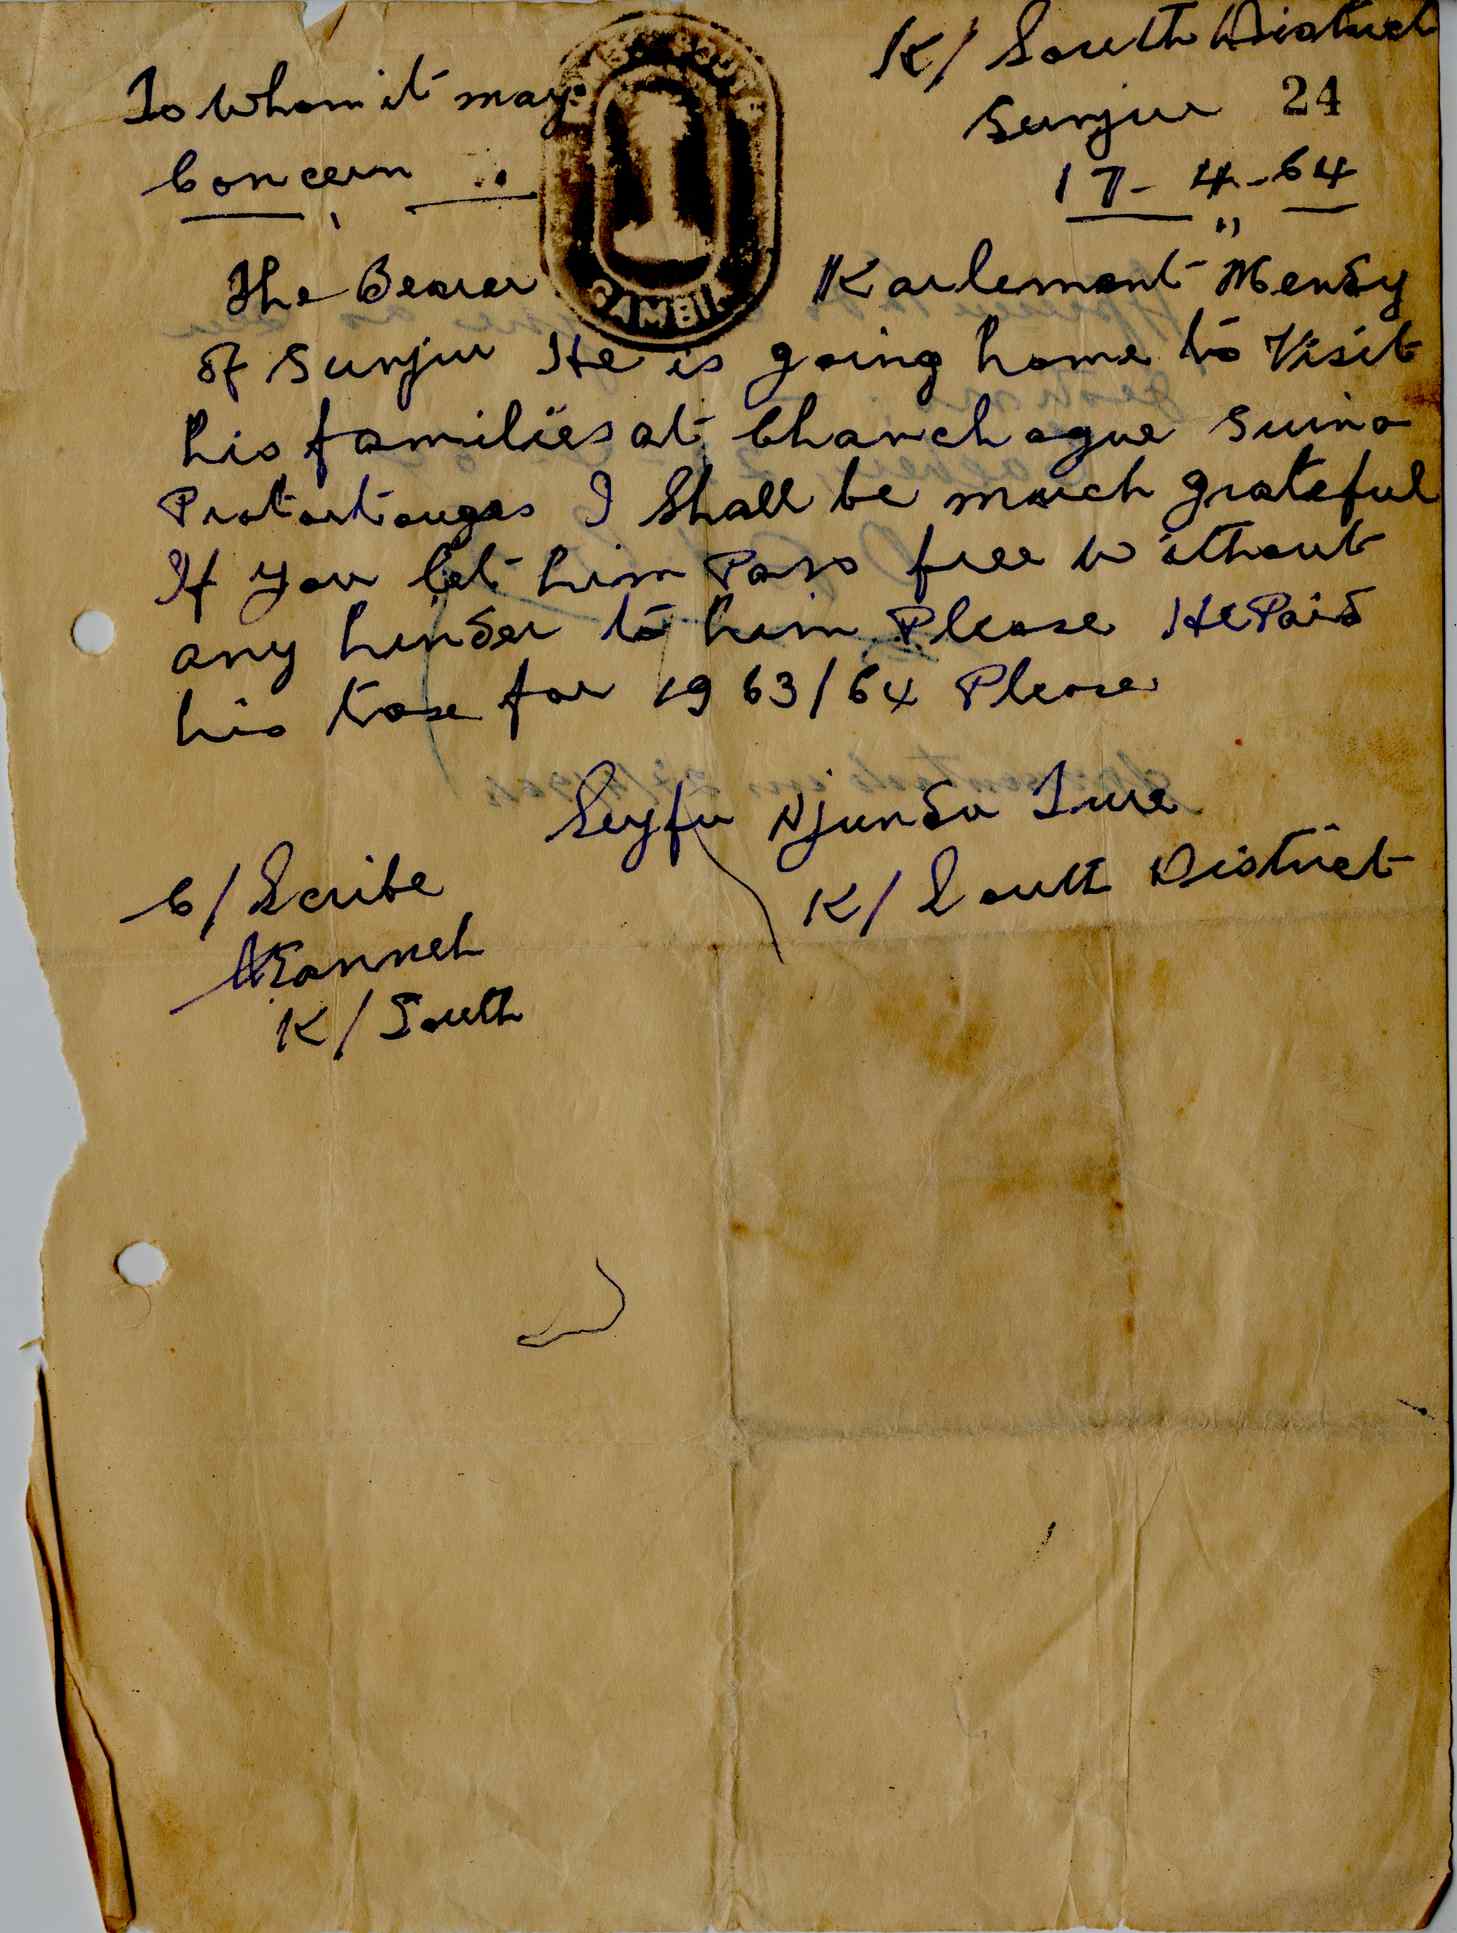 K/ South District
Sunjur 24
17-4-64
To Whom it may
Concern
GAMBIA
The Bearer Karlemont Mendy
of Sunjur He is going home to Visit
his families at Chanchague Suino
Protortouges I Shall be much grateful
If you let him Pass free without
any hinder to him Please He Paid
his taxe for 1963/64 Please
Seyfu Njundu Ture
K/ South District
C/ Scribe
K/ South